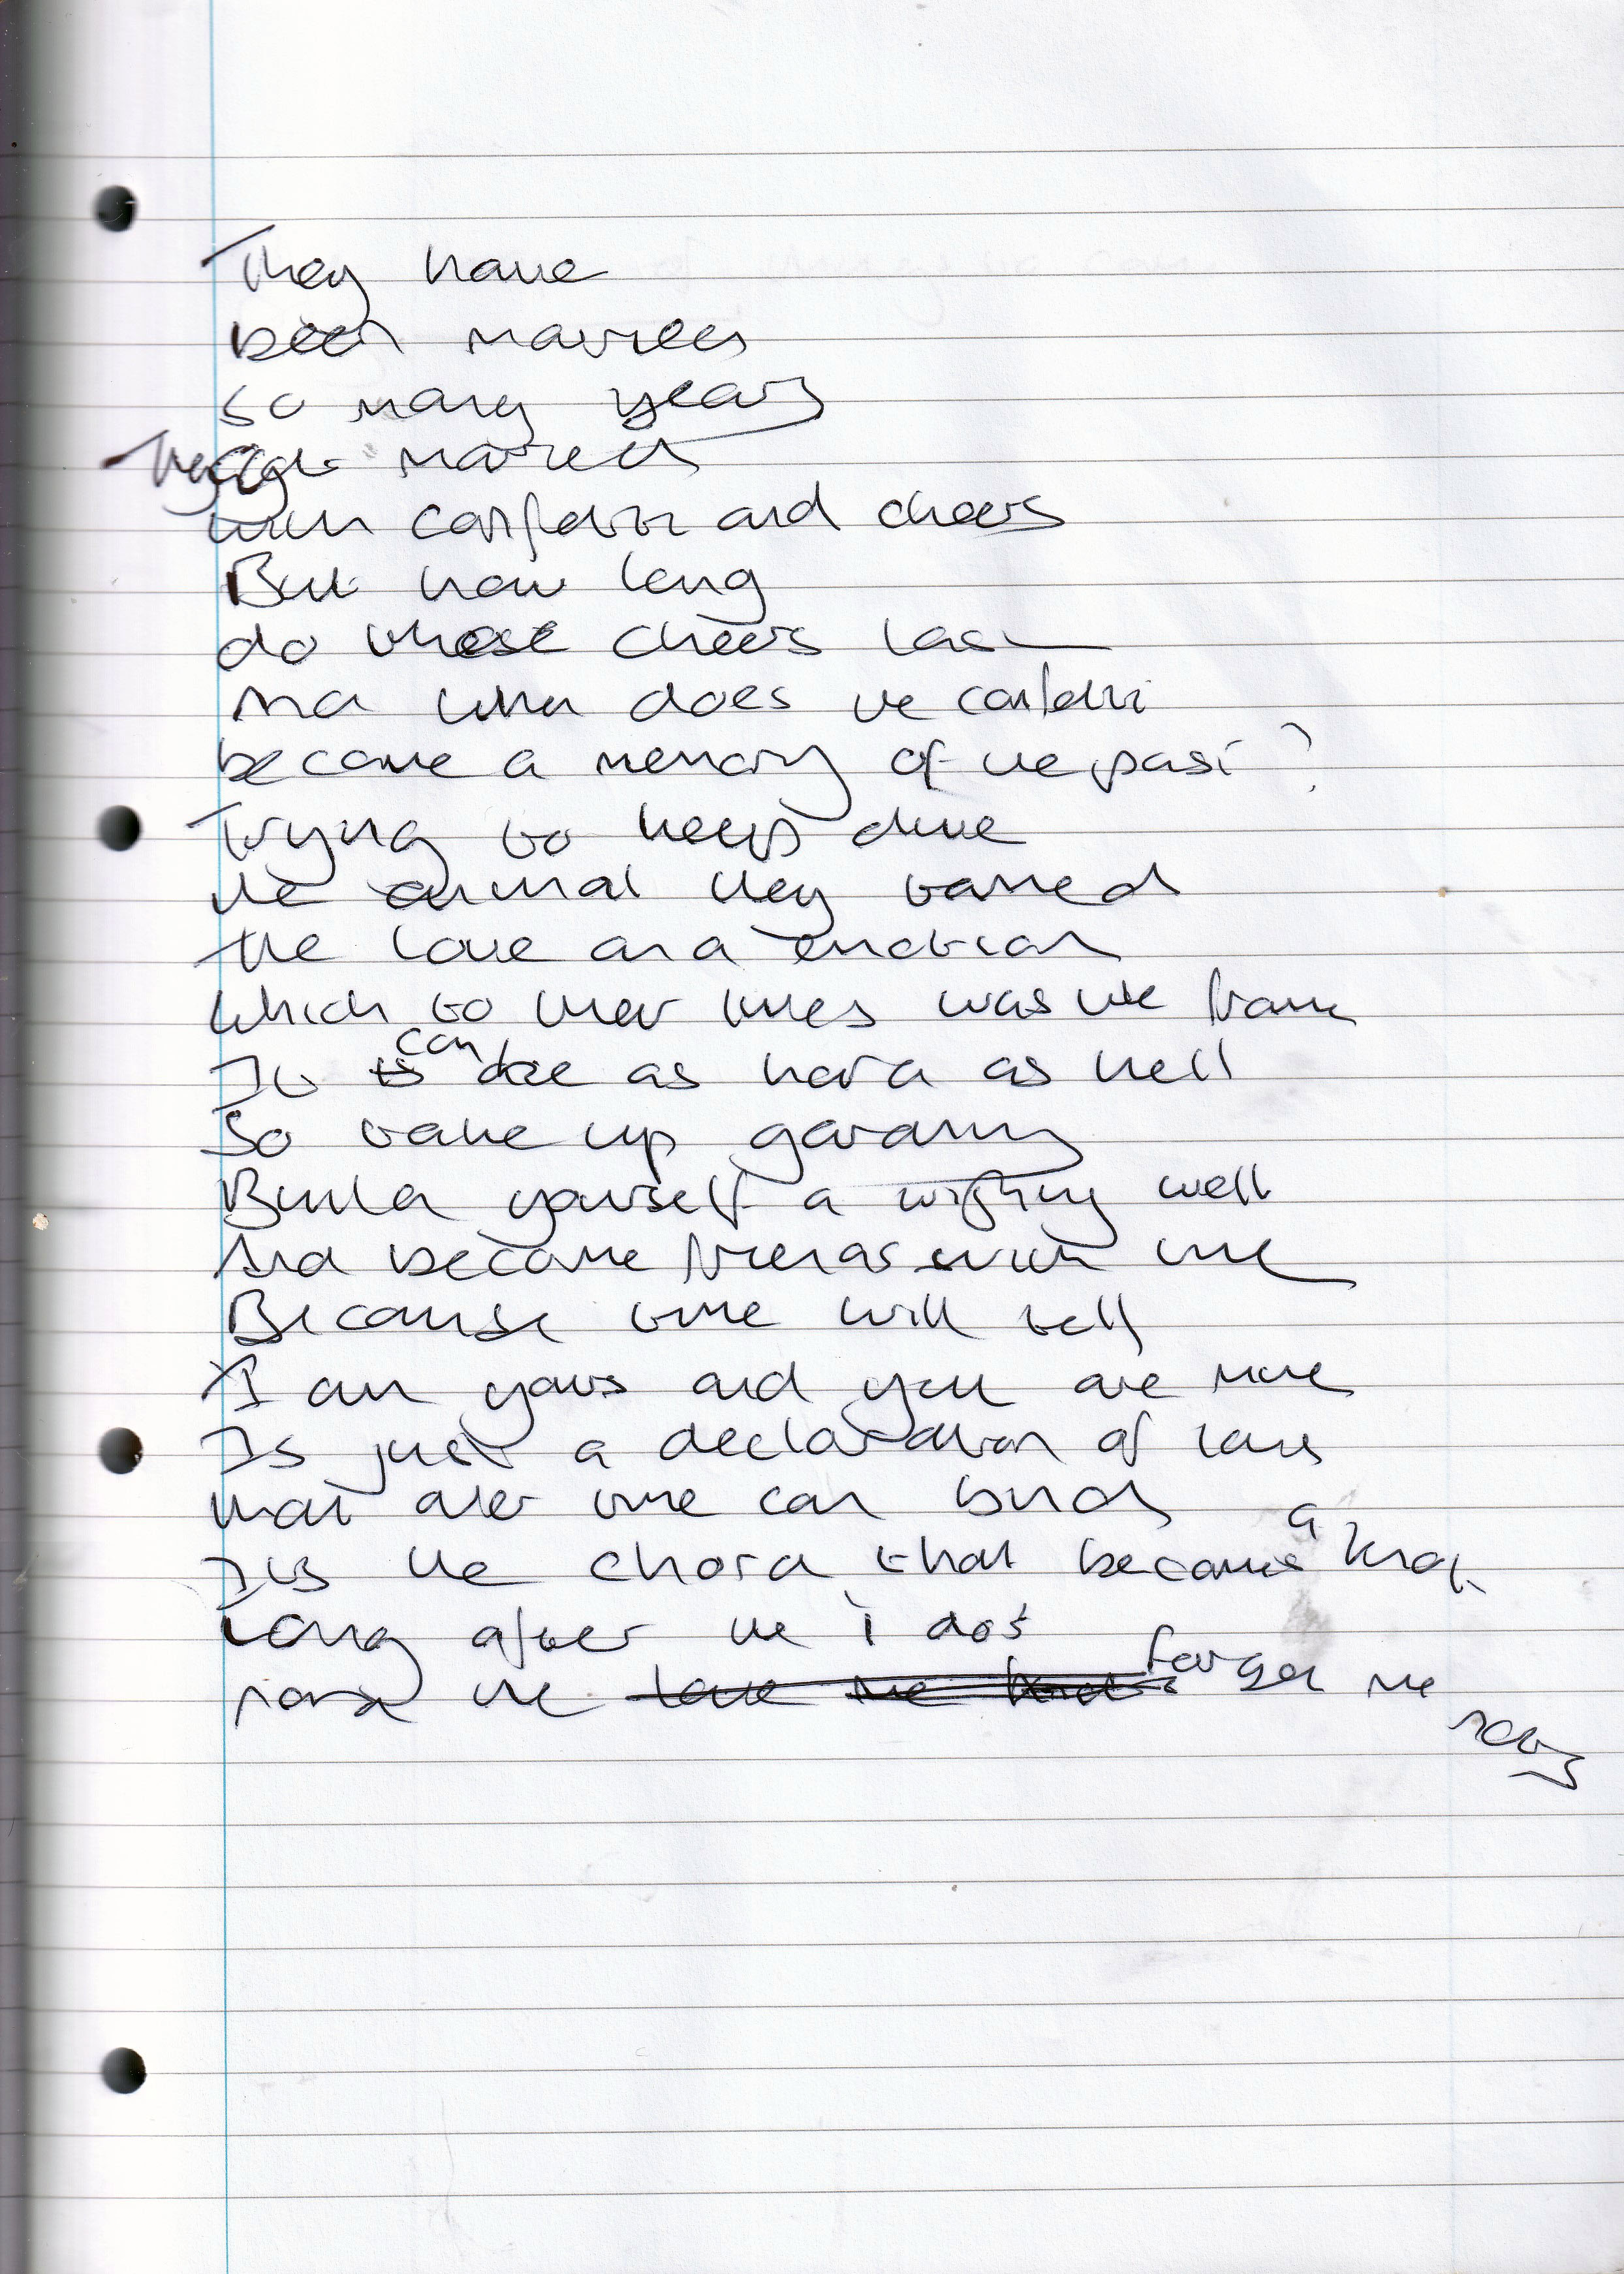 They have
been married
so many years
They got married
with confetti and cheers
But how long
do those cheers last
And when does the confetti
become a memory of the past?
Trying to keep alive
the animal they tamed
the love and emotion
which to their lives was the frame
It can be as hard as hell
So take up gardening
Build yourself a wishing well
And become friends with time
Because time will tell
I am yours and you are mine
Is just a declaration of love
that over time can bind
Its the chord that becomes a knot
Long after the i do's
the forget me nots